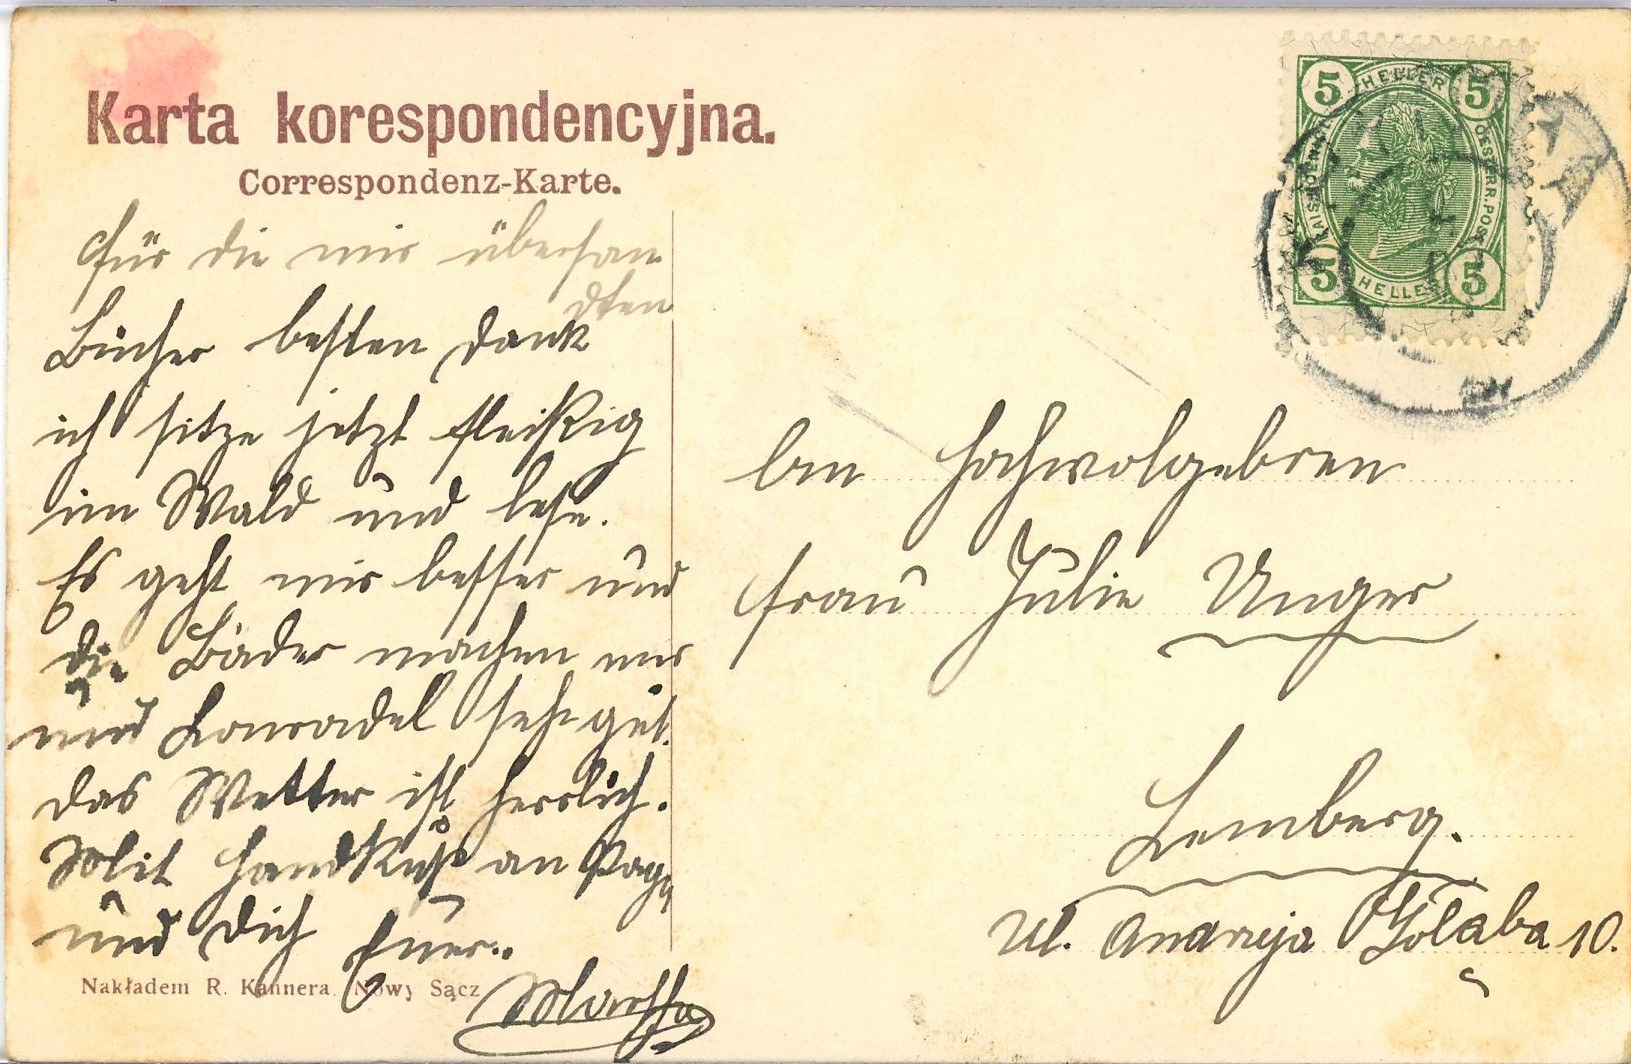 Karta korespondencyjna.
Correspondenz-Karte.
5 HELLER 5
OESTERR. POST
5 HELLER 5
für die mir übersan
dten
Bücher besten Dank
ich sitze jetzt fleißig
im Wald und lese.
Es geht mir besser und
die Bäder machen mir
und Konradel sehr gut.
das Wetter ist herrlich.
Mit Handkuß an Papa
und Dich Euer..
Martha
An Hochwolgebren
Frau Julie Unger
Lemberg.
Ul. Andrzeja Gołąba 10.
Nakładem R. Kannera, Nowy Sącz